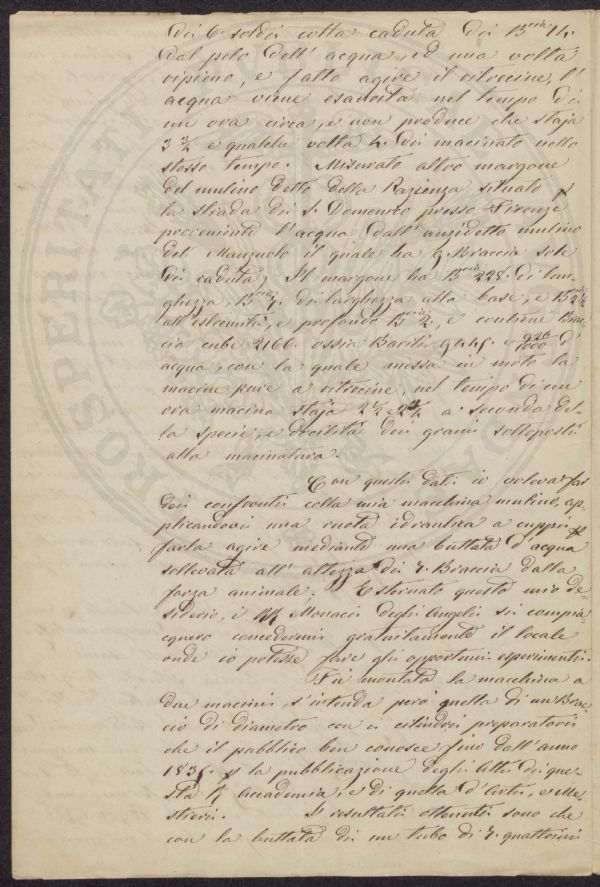 di 6 soldi colla caduta di B.cia 14.
dal pelo dell' acqua, ed una volta
ripieno, e fatto agire il ritrecine, l'
acqua viene esausta nel tempo di
un ora circa, e non produce che staja
3 3/4 e qualche volta 4. di macinato nello
stesso tempo. Misurato altro margone
del mulino detto della Pazienza situato p
la strada di S. Domenico presso Firenze
proveniente l'acqua dall' anzidetto mulino
del Manzuolo il quale ha 9. Braccia sole
di caduta; Il margone ha B.cia 228. di lun-
ghezza, B.cia 7. di larghezza alla base, e B.cia 2 1/2
all' estremità, e profondo B.cia 2., e contiene Brac-
cia cube 2166. ossia Barili 9445. 926/1000 d'
acqua, con la quale messa in moto la
macine pure a ritrecine, nel tempo di un
ora macina staja 2 1/2 a seconda del-
la specie, e docilità dei grani sottoposti
alla macinatura.
Con questi dati io voleva far
dei confronti colla mia macchina mulino, ap-
plicandovi una ruota idraulica a cuppi p
farla agire mediante una buttata d' acqua
sollevata all' altezza di 7. Braccia dalla
forza animale; Esternato questo mio de-
siderio, i Monaci degli Angeli si compia-
cquero concedermi gratuitamente il locale
onde io potesse fare gli opportuni esperimenti.
Fù montata la macchina a
due macini, s'intenda però quella di un Brac-
cio di diametro con i cilindri preparatorii
che il pubblico ben conosce fino dall' anno
1836. p la pubblicazione degli Atti di que-
sta Accademia, e di quella d' Arti, e Me-
stieri. I resultati ottenuti sono che
con la buttata di un tubo di 7. quattrini